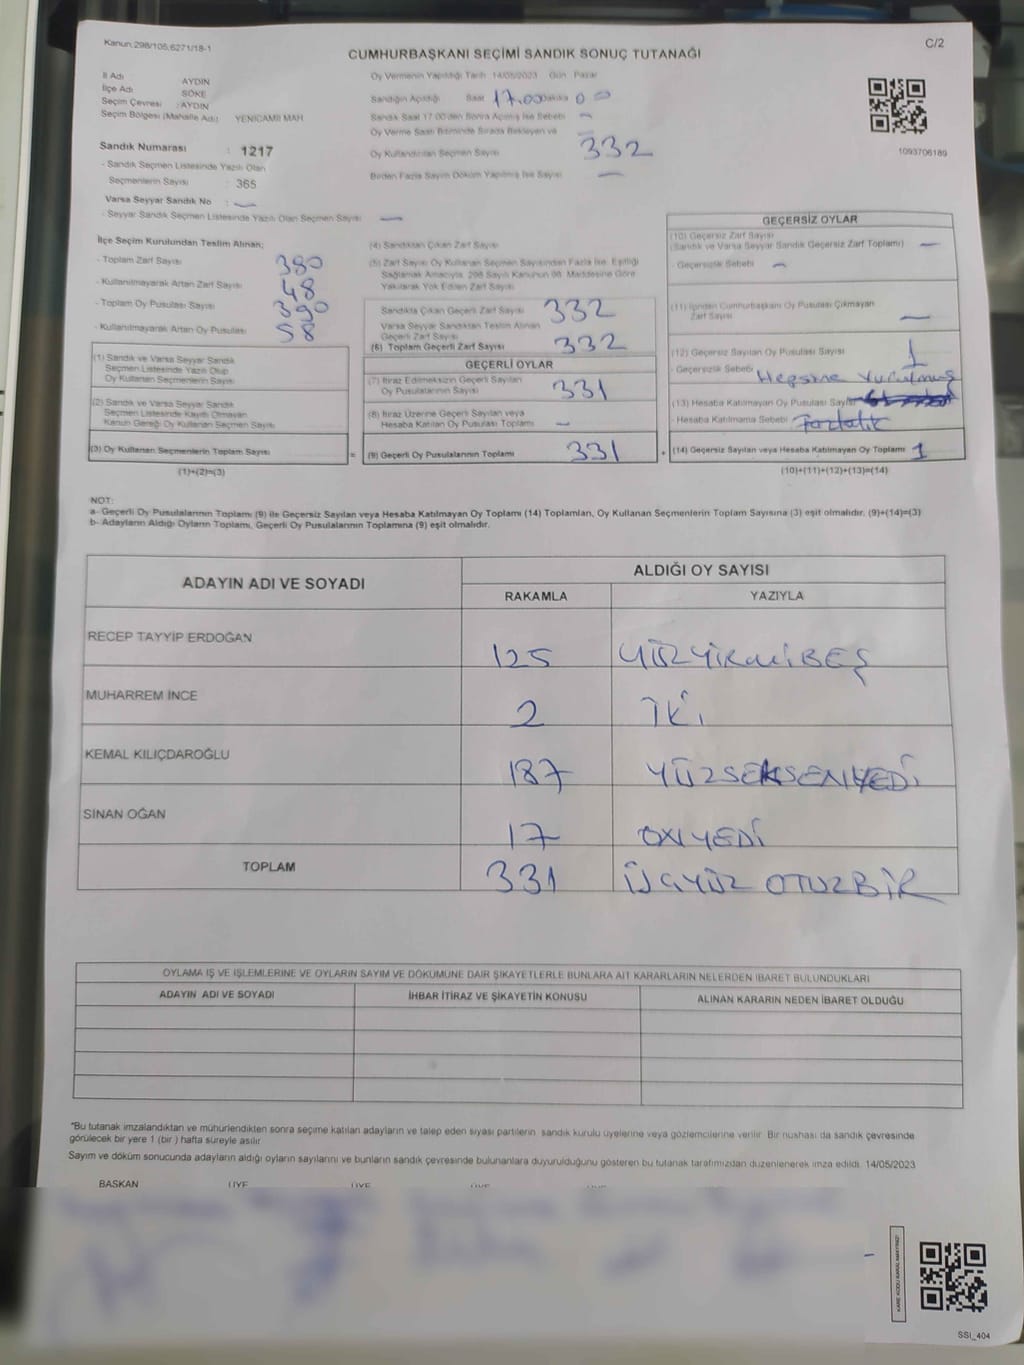 Kanun;298/105;6271/18-1
C/2
CUMHURBAŞKANI SEÇİMİ SANDIK SONUÇ TUTANAĞI
İl Adı AYDIN
İlçe Adı SÖKE
Seçim Çevresi : AYDIN
Seçim Bölgesi (Mahalle Adı) YENİCAMİİ MAH
Sandık Numarası : 1217
- Sandık Seçmen Listesinde Yazılı Olan
Seçmenlerin Sayısı : 365
Varsa Seyyar Sandık No : —
- Seyyar Sandık Seçmen Listesinde Yazılı Olan Seçmen Sayısı —
Oy Vermenin Yapıldığı Tarih 14/05/2023 Gün Pazar
Sandığın Açıldığı Saat 17.00 Dakika 00
Sandık Saat 17:00'den Sonra Açılmış İse Sebebi —
Oy Verme Saati Bitiminde Sırada Bekleyen ve —
Oy Kullandırılan Seçmen Sayısı 332
Birden Fazla Sayım Döküm Yapılmış İse Sayısı —
1093706189
İlçe Seçim Kurulundan Teslim Alınan;
- Toplam Zarf Sayısı 380
- Kullanılmayarak Artan Zarf Sayısı 48
- Toplam Oy Pusulası Sayısı 390
- Kullanılmayarak Artan Oy Pusulası 58
(1) Sandık ve Varsa Seyyar Sandık
Seçmen Listesinde Yazılı Olup
Oy Kullanan Seçmenlerin Sayısı
(2) Sandık ve Varsa Seyyar Sandık
Seçmen Listesinde Kayıtlı Olmayan
Kanun Gereği Oy Kullanan Seçmen Sayısı
(3) Oy Kullanan Seçmenlerin Toplam Sayısı
=
(1)+(2)=(3)
(4) Sandıktan Çıkan Zarf Sayısı
(5) Zarf Sayısı Oy Kullanan Seçmen Sayısından Fazla İse, Eşitliği
Sağlamak Amacıyla, 298 Sayılı Kanunun 98. Maddesine Göre
Yakılarak Yok Edilen Zarf Sayısı
Sandıkta Çıkan Geçerli Zarf Sayısı 332
Varsa Seyyar Sandıktan Teslim Alınan
Geçerli Zarf Sayısı
(6) Toplam Geçerli Zarf Sayısı 332
GEÇERLİ OYLAR
(7) İtiraz Edilmeksizin Geçerli Sayılan
Oy Pusulalarının Sayısı 331
(8) İtiraz Üzerine Geçerli Sayılan veya
Hesaba Katılan Oy Pusulası Toplamı —
(9) Geçerli Oy Pusulalarının Toplamı 331
+
GEÇERSİZ OYLAR
(10) Geçersiz Zarf Sayısı
(Sandık ve Varsa Seyyar Sandık Geçersiz Zarf Toplamı) —
- Geçersizlik Sebebi —
(11) İçinden Cumhurbaşkanı Oy Pusulası Çıkmayan
Zarf Sayısı —
(12) Geçersiz Sayılan Oy Pusulası Sayısı 1
- Geçersizlik Sebebi Hepsine Vurulmuş
(13) Hesaba Katılmayan Oy Pusulası Sayısı
- Hesaba Katılmama Sebebi Fazlalık
(14) Geçersiz Sayılan veya Hesaba Katılmayan Oy Toplamı 1
(10)+(11)+(12)+(13)=(14)
NOT:
a- Geçerli Oy Pusulalarının Toplamı (9) ile Geçersiz Sayılan veya Hesaba Katılmayan Oy Toplamı (14) Toplamları, Oy Kullanan Seçmenlerin Toplam Sayısına (3) eşit olmalıdır. (9)+(14)=(3)
b- Adayların Aldığı Oyların Toplamı, Geçerli Oy Pusulalarının Toplamına (9) eşit olmalıdır.
ADAYIN ADI VE SOYADI ALDIĞI OY SAYISI
RAKAMLA YAZIYLA
RECEP TAYYİP ERDOĞAN 125 YÜZYİRMİBEŞ
MUHARREM İNCE 2 İKİ
KEMAL KILIÇDAROĞLU 187 YÜZSEKSENYEDİ
SİNAN OĞAN 17 ONYEDİ
TOPLAM 331 ÜÇYÜZ OTUZBİR
OYLAMA İŞ VE İŞLEMLERİNE VE OYLARIN SAYIM VE DÖKÜMÜNE DAİR ŞİKAYETLERLE BUNLARA AİT KARARLARIN NELERDEN İBARET BULUNDUKLARI
ADAYIN ADI VE SOYADI İHBAR İTİRAZ VE ŞİKAYETİN KONUSU ALINAN KARARIN NEDEN İBARET OLDUĞU
*Bu tutanak imzalandıktan ve mühürlendikten sonra seçime katılan adayların ve talep eden siyasi partilerin sandık kurulu üyelerine veya gözlemcilerine verilir. Bir nüshası da sandık çevresinde
görülecek bir yere 1 (bir ) hafta süreyle asılır.
Sayım ve döküm sonucunda adayların aldığı oyların sayılarını ve bunların sandık çevresinde bulunanlara duyurulduğunu gösteren bu tutanak tarafımızdan düzenlenerek imza edildi. 14/05/2023
BAŞKAN ÜYE ÜYE ÜYE ÜYE
KARE KODU KARALAMAYINIZ!
SSI_404